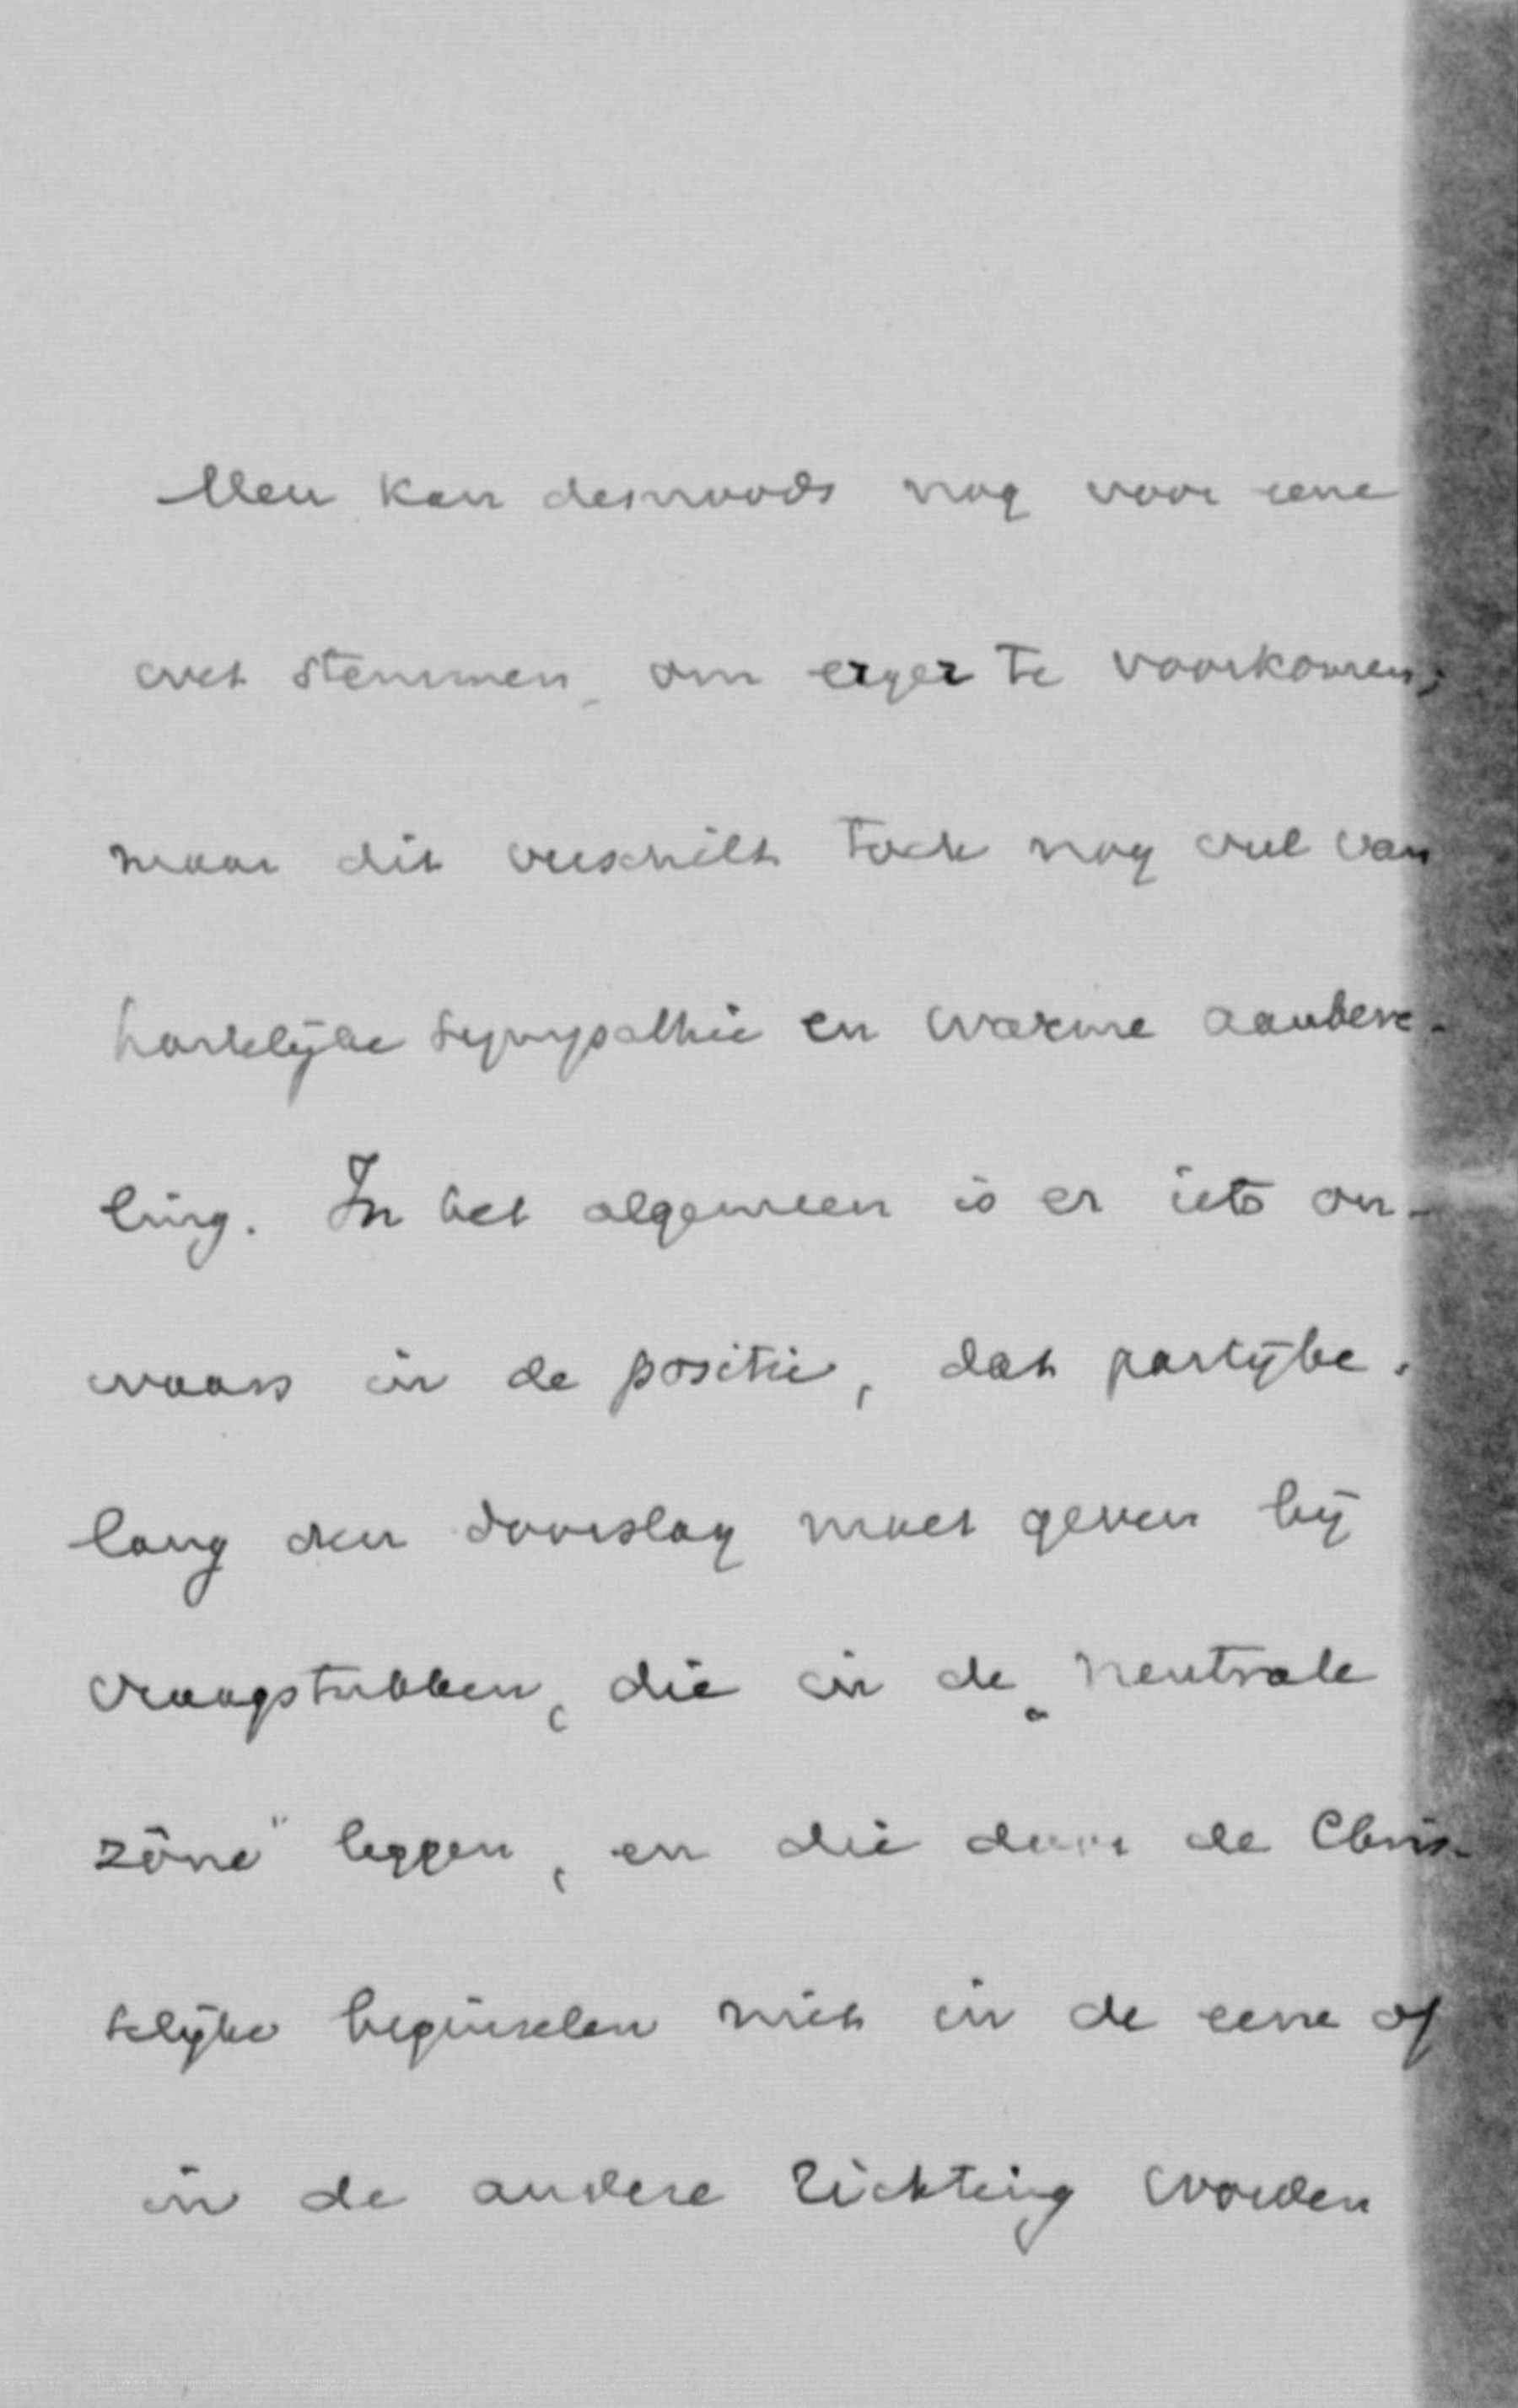 Men kan desnoods nog voor eene
wet stemmen, om erger te voorkomen;
maar dit verschilt toch nog veel van
hartelijke sympathie en warme aanbeve-
ling. In het algemeen is er iets on-
waars in de positie, dat partijbe-
lang den doorslag moet geven bij
vraagstukken, die in de „neutrale
zône" liggen, en die door de Chris-
telijke beginselen niet in de eene of
in de andere richting worden